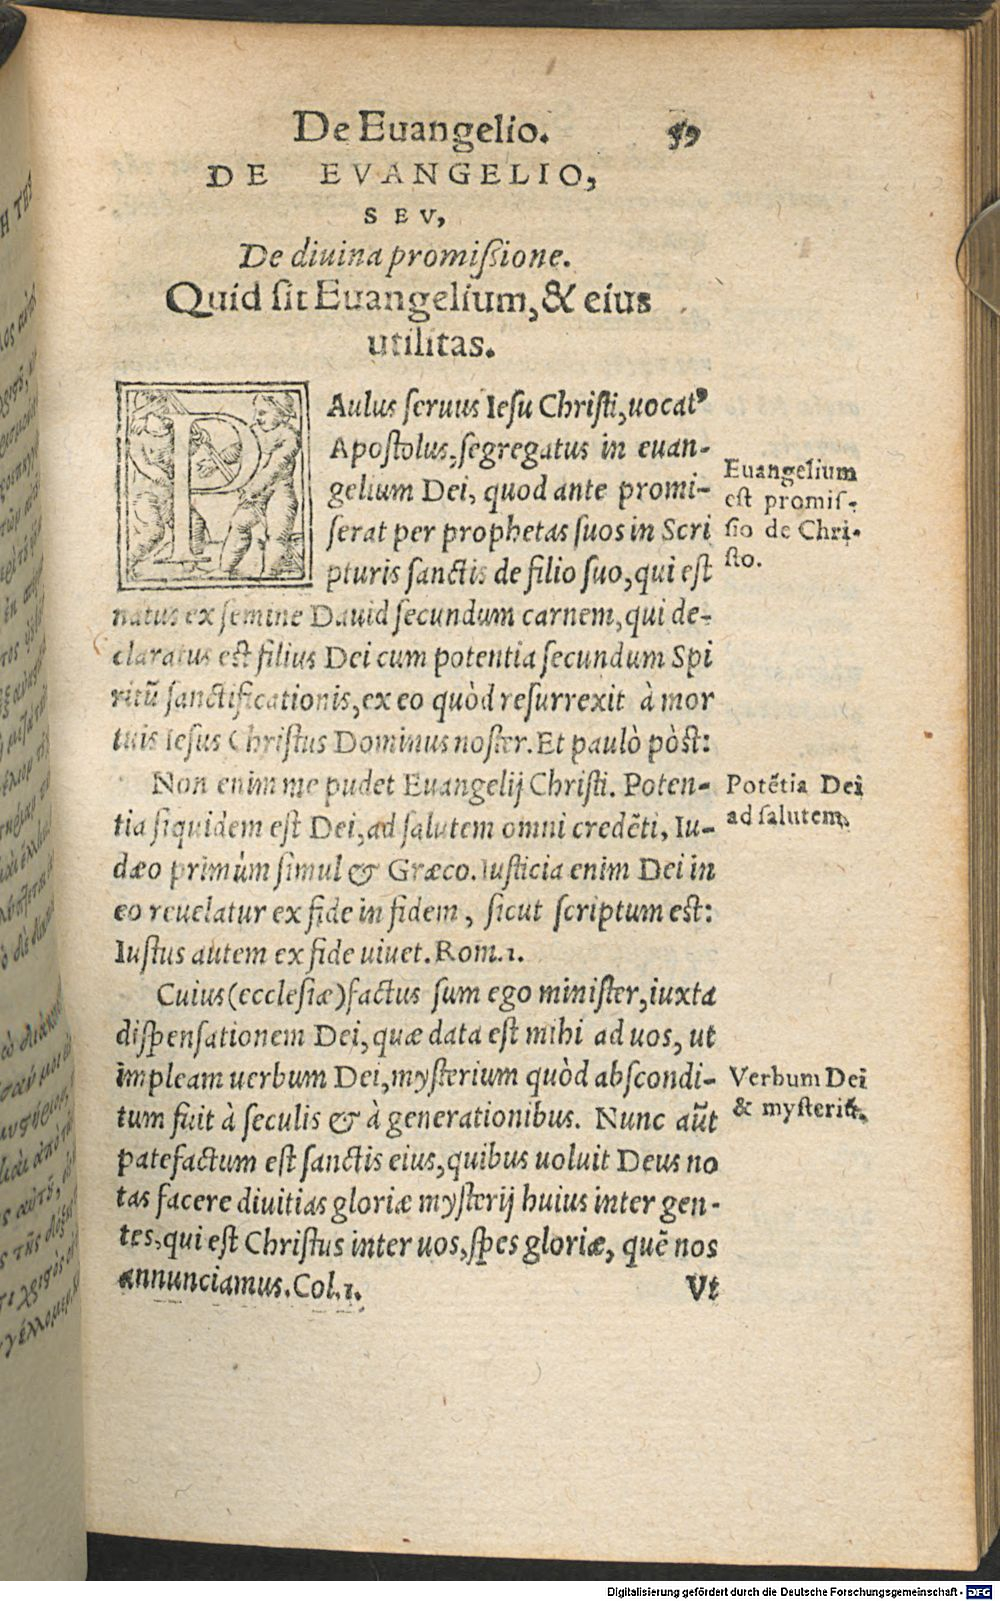 De Euangelio. 59
DE EVANGELIO,
SEV,
De diuina promiſsione.
Quid ſit Euangelium, & eius
utilitas.
PAulus ſeruus Ieſu Chriſti, uocatꝰ
Apoſtolus, ſegregatus in euan-
gelium Dei, quod ante promi-
ſerat per prophetas ſuos in Scri
pturis ſanctis de filio ſuo, qui eſt
natus ex ſemine Dauid ſecundum carnem, qui de-
claratus eſt filius Dei cum potentia ſecundum Spi
ritū ſanctificationis, ex eo quòd reſurrexit à mor
tuis Ieſus Chriſtus Dominus noſter. Et paulò pòſt:
Euangelium
eſt promiſ-
ſio de Chri-
ſto.
Non enim me pudet Euangelij Chriſti. Poten-
tia ſiquidem eſt Dei, ad ſalutem omni credēti, Iu-
dæo primùm ſimul & Græco. Iuſticia enim Dei in
eo reuelatur ex fide in fidem, ſicut ſcriptum eſt:
Iuſtus autem ex fide uiuet. Rom. 1.
Potētia Dei
ad ſalutem.
Cuius (eccleſiæ) factus ſum ego miniſter, iuxta
diſpenſationem Dei, quæ data eſt mihi ad uos, ut
impleam uerbum Dei, myſterium quòd abſcondi-
tum fuit à ſeculis & à generationibus. Nunc aūt
patefactum eſt ſanctis eius, quibus uoluit Deus no
tas facere diuitias gloriæ myſterij huius inter gen-
tes, qui eſt Chriſtus inter uos, ſpes gloriæ, quē nos
annunciamus. Col. 1.
Verbum Dei
& myſteriū.
Vt
Digitalisierung gefördert durch die Deutsche Forschungsgemeinschaft - DFG